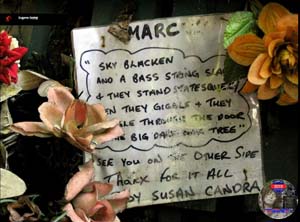 MARC
" SKY BLACKEN
AND A BASS STRONG
& THEY STAND STATESQUELY
THEY GIGGLE & THEY
THROUGH THE DOOR
THE BIG DARK TREE"
SEE YOU ON THE OTHER SIDE
THANX FOR IT ALL
SUSAN CANDRA